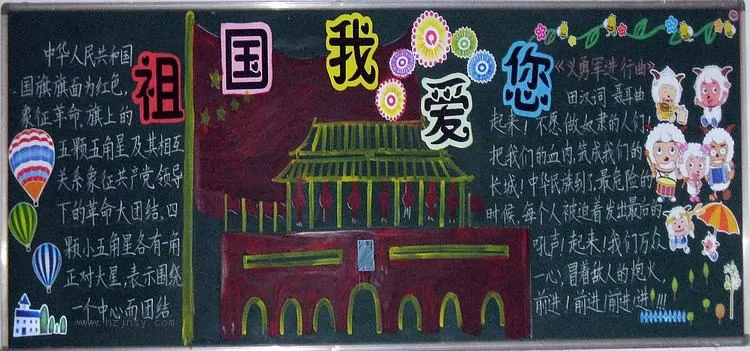 祖国我爱您
中华人民共和国
国旗旗面为红色,
象征革命,旗上的
五颗五角星及其相互
关系象征共产党领导
下的革命大团结,四
颗小五角星各有一角
正对大星,表示围绕
一个中心而团结
《义勇军进行曲》
田汉词 聂耳曲
起来!不愿做奴隶的人们!
把我们的血肉,筑成我们的
长城!中华民族到了最危险的
时候,每个人被迫着发出最后的
吼声!起来!我们万众
一心,冒着敌人的炮火,
前进!前进!前进!进!!!
www.hzjnsy.com